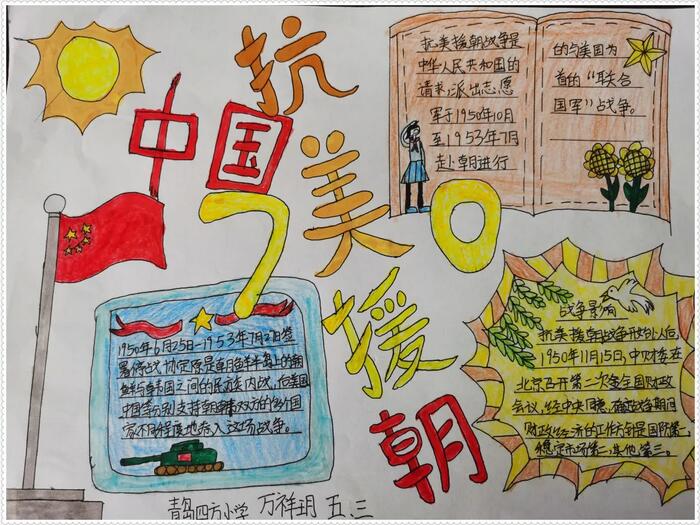 抗
中国
美
70
援
朝
抗美援朝战争是
中华人民共和国的
请求,派出志愿
军于1950年10月
至1953年7月
赴朝进行
的与美国为
首的“联合
国军”战争。
1950年6月25日-1953年7月27日签
署停战协定
中国等分别支持朝
家不同程度地卷入这场战争。
战争影响
抗美援朝战争开始以后
1950年11月15日,中财委在
北京召开第二次全国财政
会议,经中央同意,确定战争期间
财政经济的工作方针是国防第一,
稳定市场第二,其他第三。
青岛四方小学 万祥玥 五、三